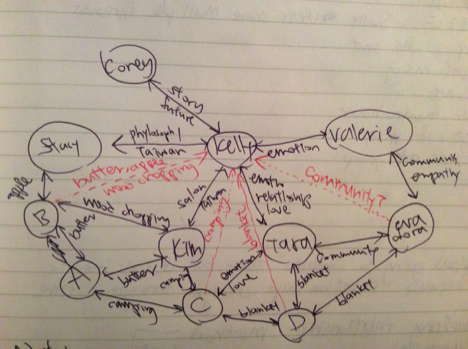 Corey
story
future
Stacy
philosophy
Taiwan
Kelly
emotion
Valerie
butter, apple
mad chopping
Community?
Community
empathy
apple
B
mad chopping
butter
salon
Taiwan
camping
blanket
emotion
relationship
love
Kim
Tara
X
butter
camping
emotion
love
Community
blanket
blanket
camping
C
blanket
D